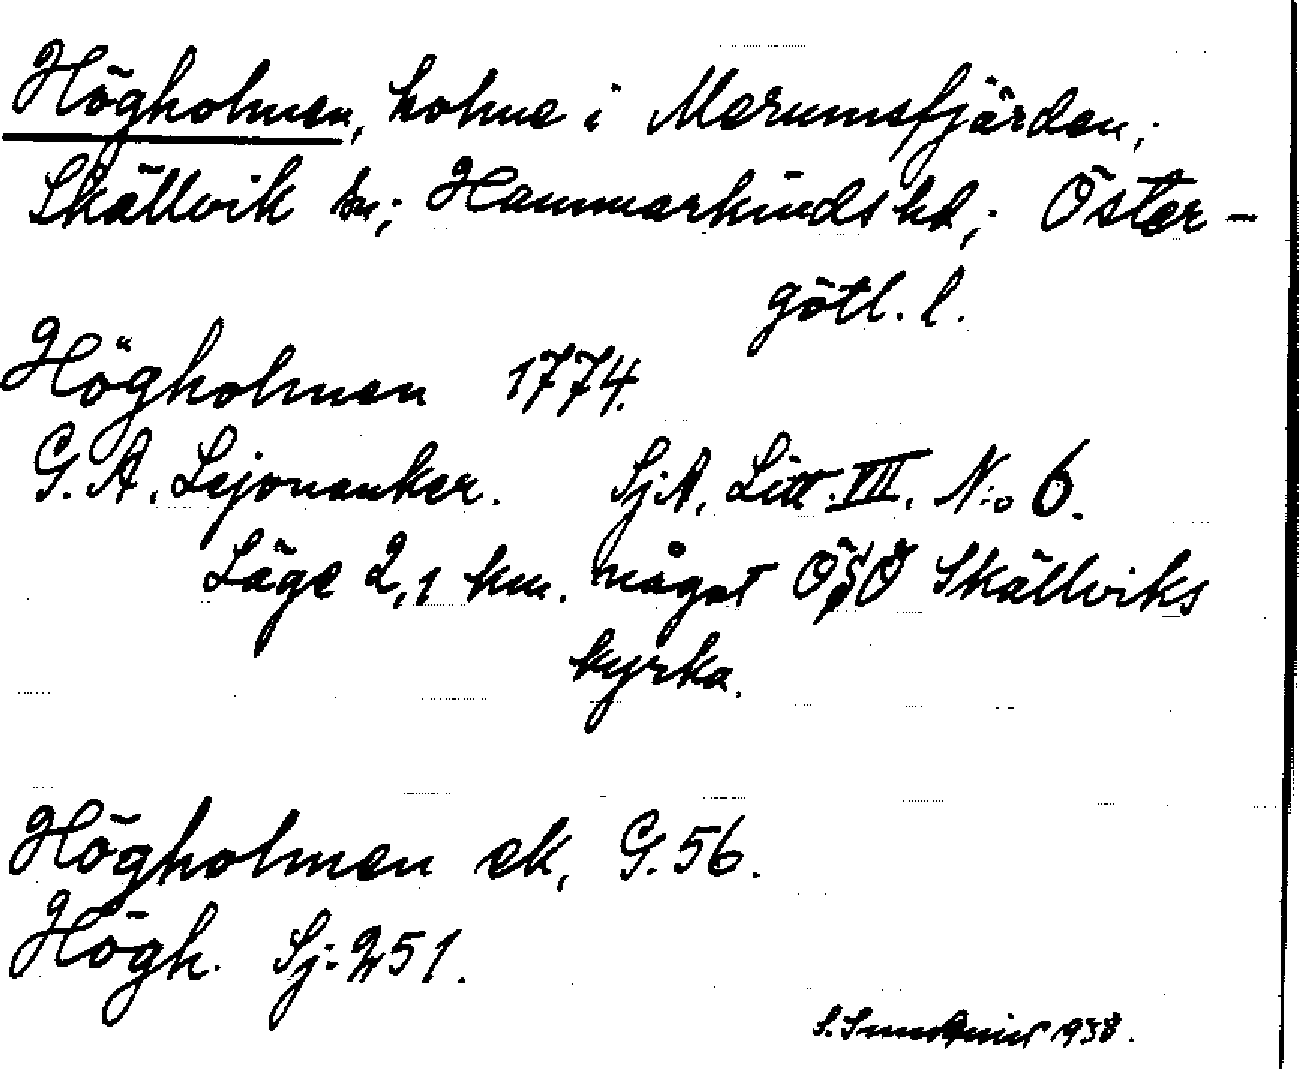 Högholmen, holme i Merumsfjärden,
Skällvik sn; Hammarkinds hd; Öster-
götl. l.
Högholmen 1774.
G. A. Lejonanker. SjA, Litt. VII. N:o 6.
Läge 2,1 km. något ÖSÖ Skällviks
kyrka.
Högholmen ek, G. 56.
Högh. Sj: 251.
S. 1938.